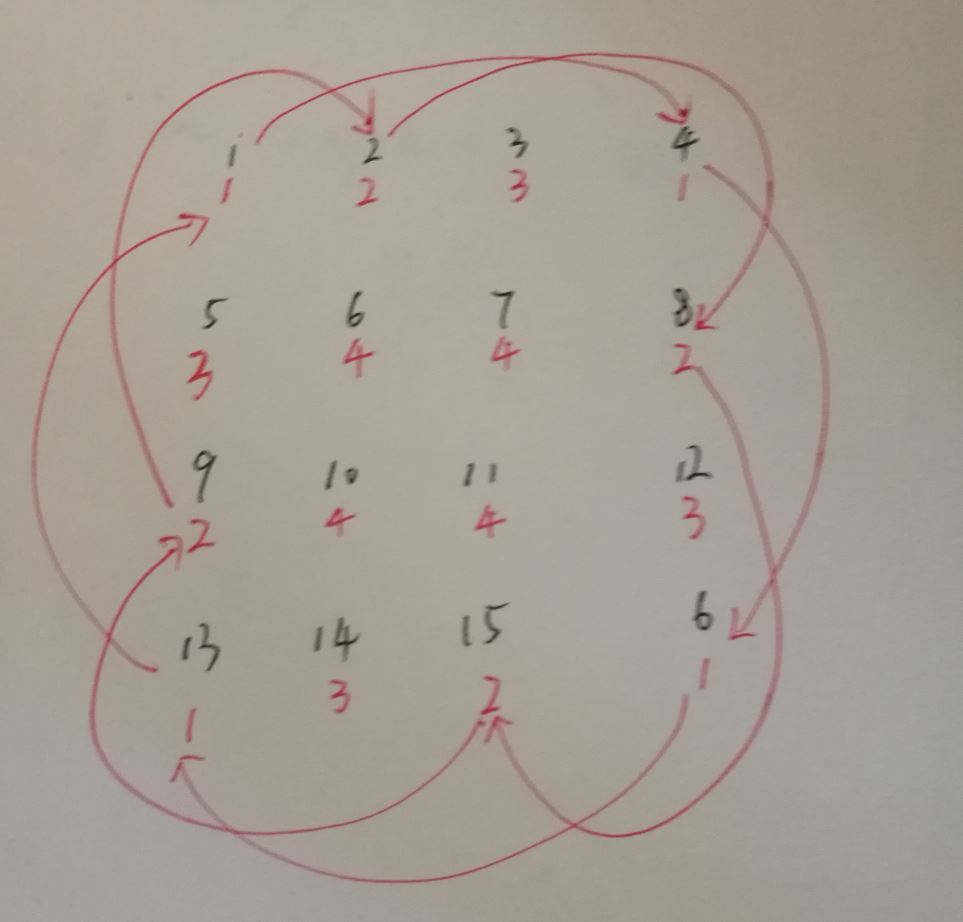 1 2 3 4
1 2 3 1
5 6 7 8
3 4 4 2
9 10 11 12
2 4 4 3
13 14 15 6
1 3 2 1